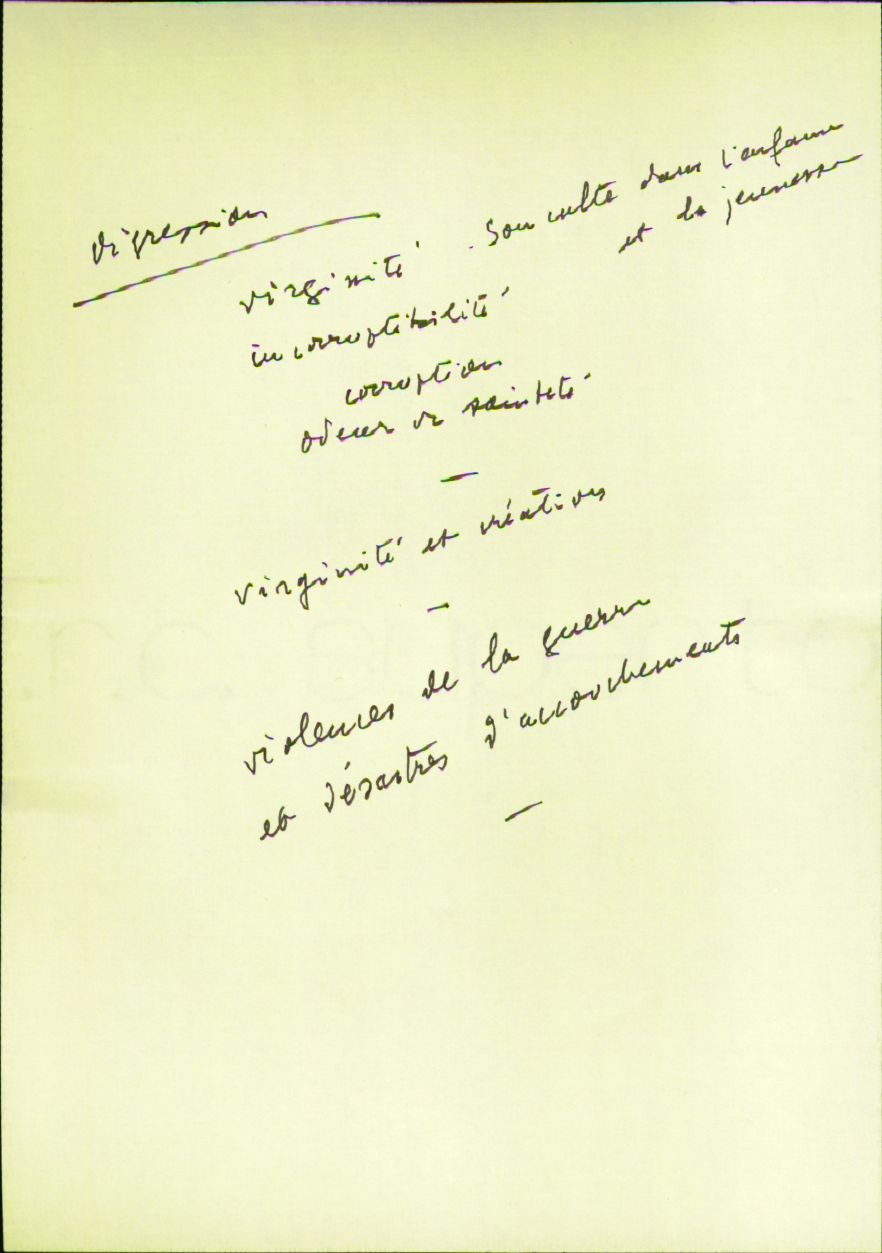 digression
virginité. Son culte dans l'enfance
et la jeunesse
incorruptibilité
corruption
odeur de sainteté
—
virginité et création
—
violences de la guerre
et désastres d'accouchements
—